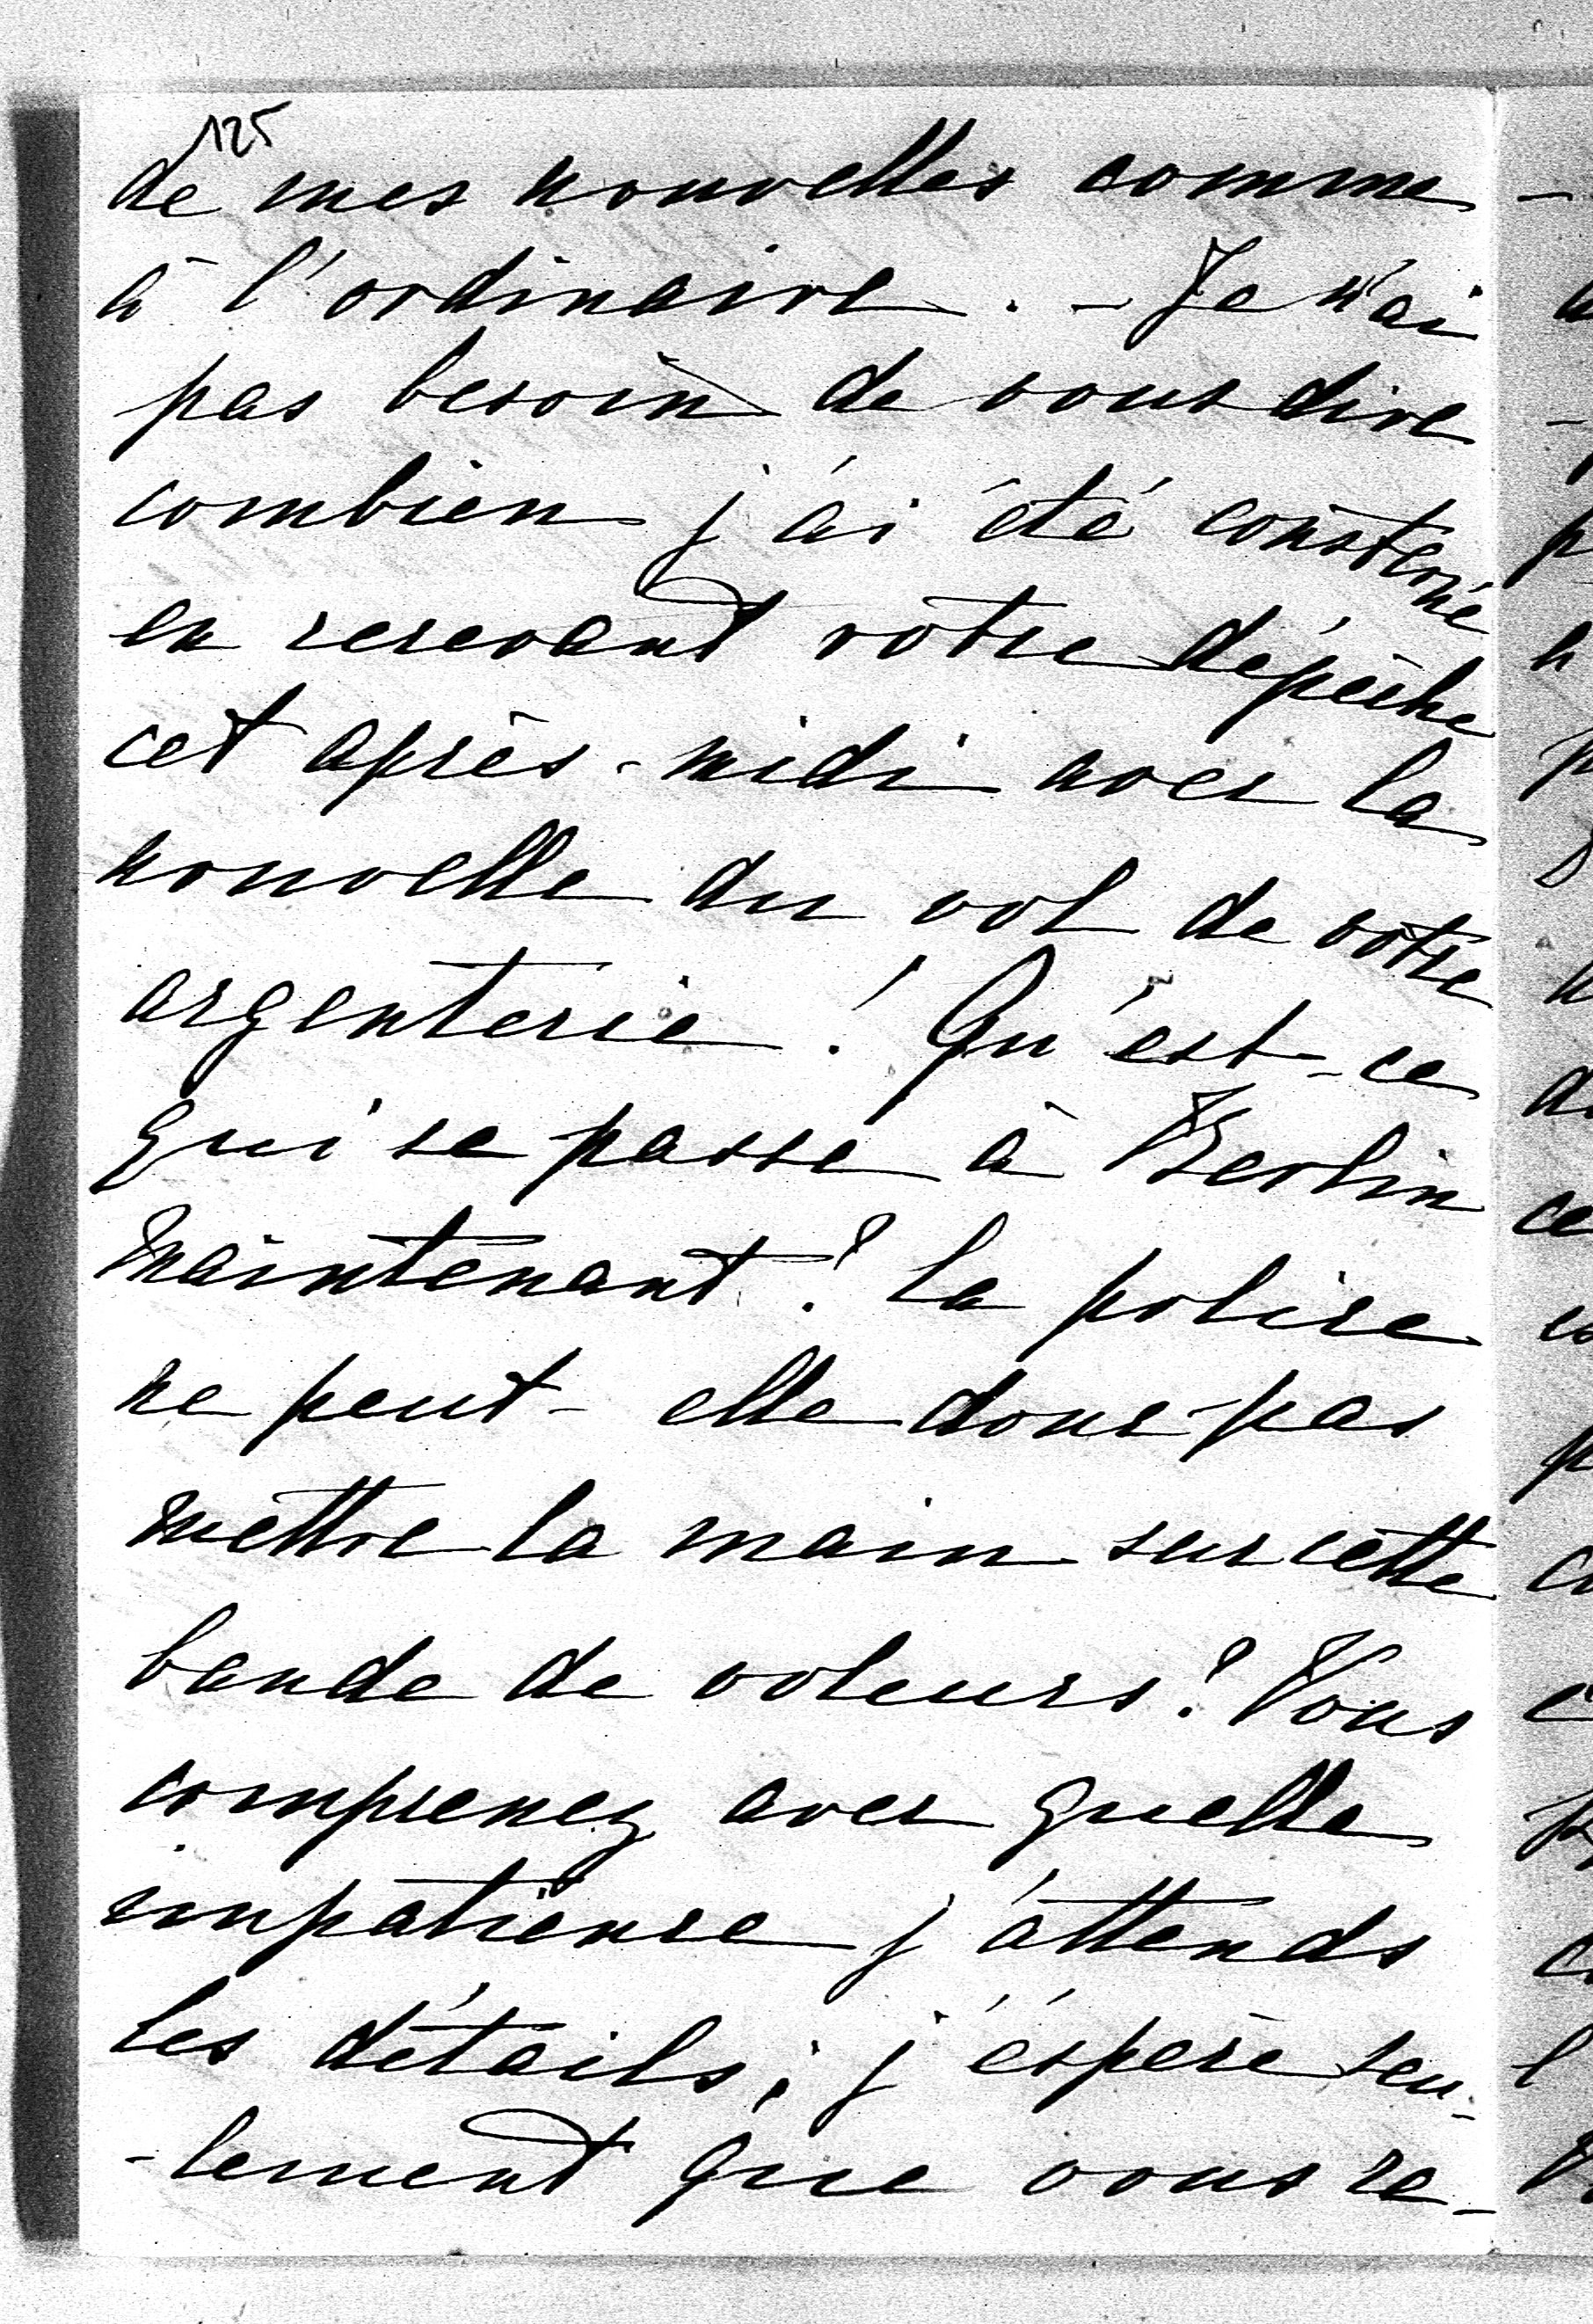 125
de mes nouvelles comme
à l'ordinaire. - Je n'ai
pas besoin de vous dire
combien j'ai été consterné
en recevant votre dépêche
cet après-midi avec la
nouvelle du vol de votre
argenterie! Qu'est-ce
qui se passe à Berlin
maintenant? La police
ne peut-elle donc pas
mettre la main sur cette
bande de voleurs? Vous
comprenez avec quelle
impatience j'attends
les détails; j'éspère seu-
-lement que vous re-